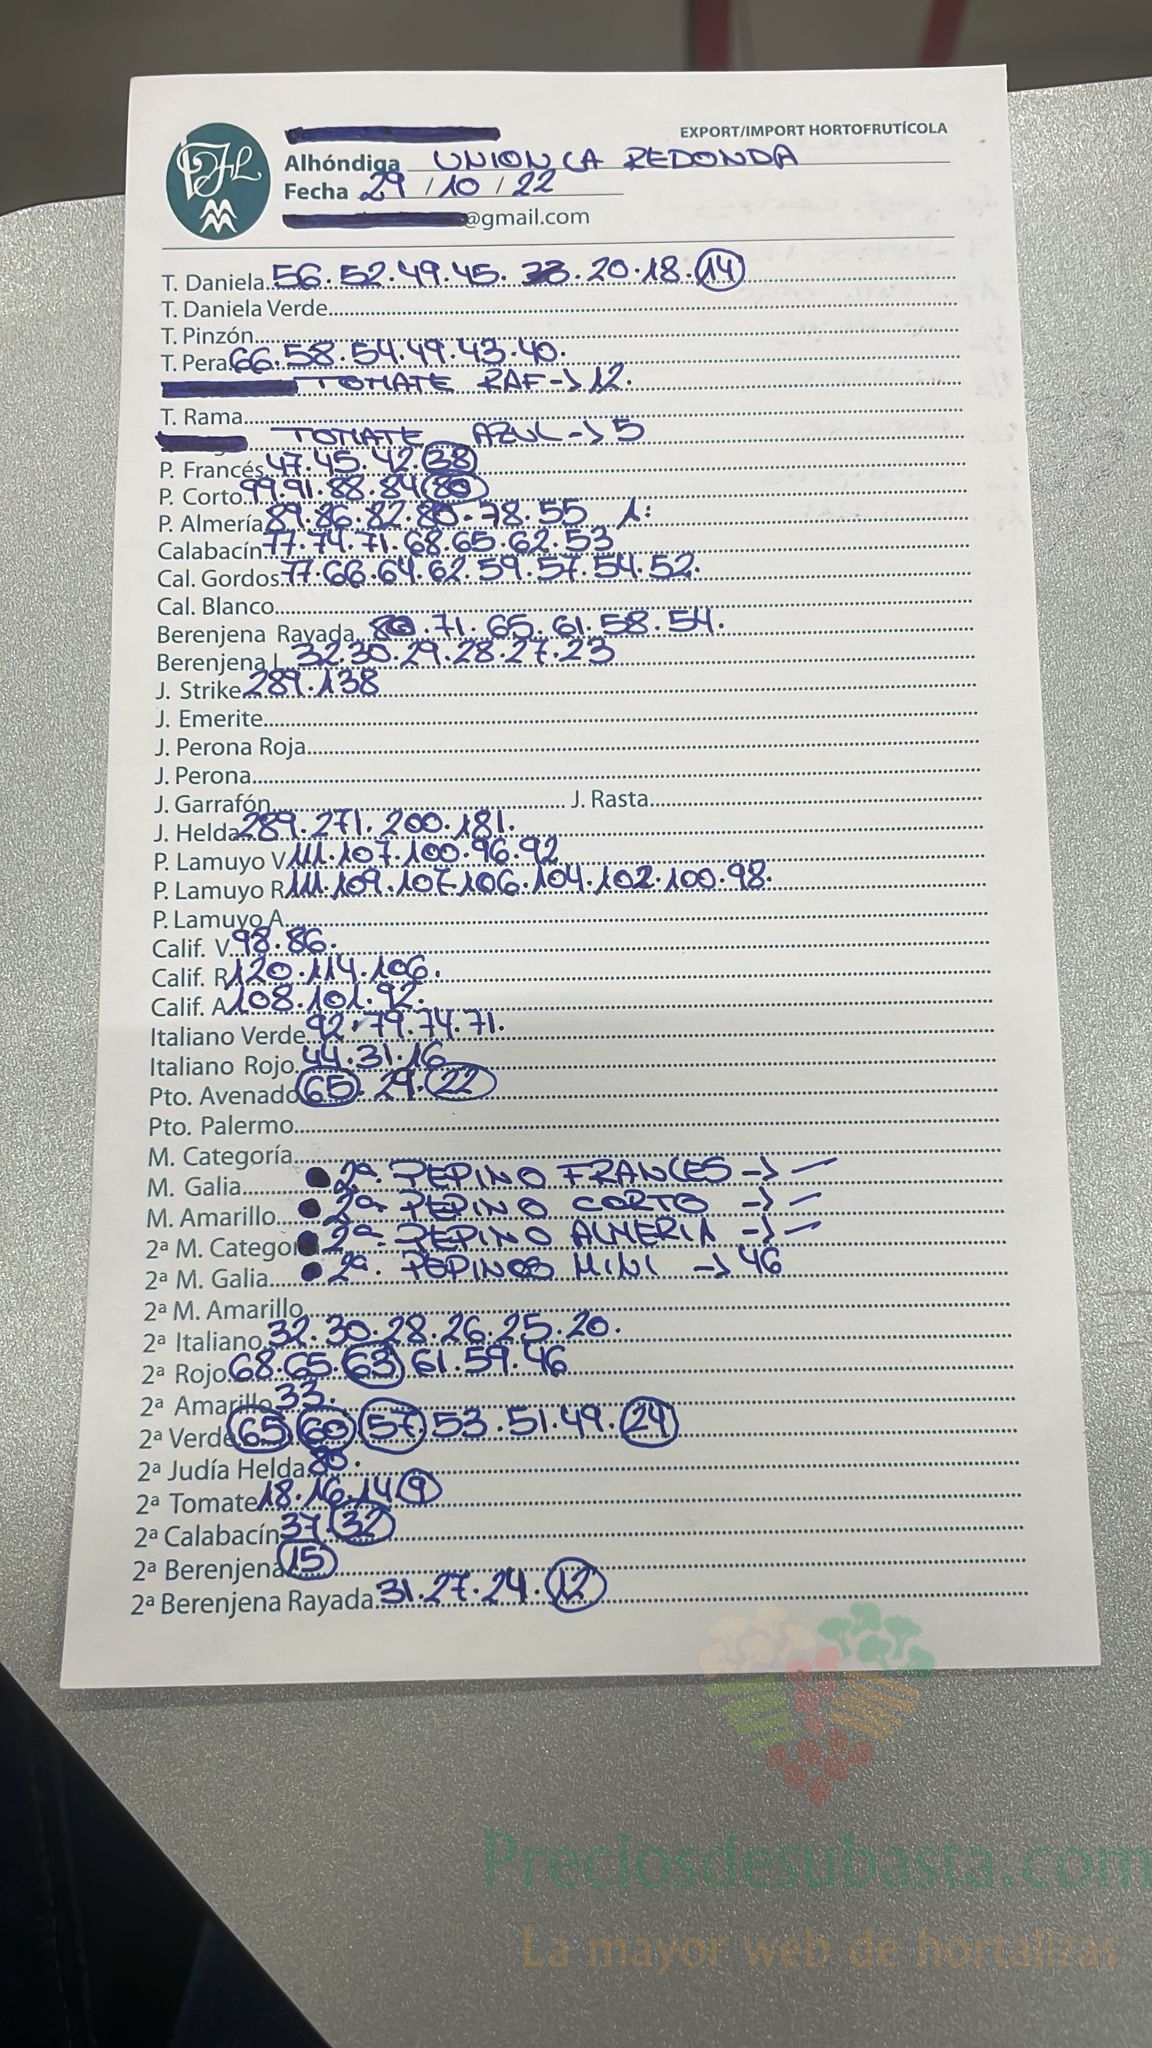 EXPORT/IMPORT HORTOFRUTÍCOLA
Alhóndiga UNION LA REDONDA
Fecha 29 / 10 / 22
@gmail.com
T. Daniela 56.52.49.45. 20.18.14
T. Daniela Verde
T. Pinzón
T. Pera 66.58.54.49.43.40.
TOMATE RAF -> 12.
T. Rama
TOMATE AZUL -> 5
P. Francés 47.45.42.38
P. Corto 99.91.88.84.80
P. Almería 89.86.82.80.78.55 1:
Calabacín 77.74.71.68.65.62.53
Cal. Gordos 77.66.64.62.59.57.54.52.
Cal. Blanco
Berenjena Rayada 80.71.65.61.58.54.
Berenjena L. 32.30.29.28.27.23
J. Strike 289.138
J. Emerite
J. Perona Roja
J. Perona
J. Garrafón J. Rasta
J. Helda 289.271.200.181.
P. Lamuyo V 111.107.100.96.92
P. Lamuyo R 111.109.107.106.104.102.100.98.
P. Lamuyo A
Calif. V. 98.86.
Calif. R 120.114.106.
Calif. A 108.101.92.
Italiano Verde 92.79.74.71.
Italiano Rojo 44.31.16
Pto. Avenado 65.29.22
Pto. Palermo
M. Categoría
M. Galia 2ª. PEPINO FRANCES -> —
M. Amarillo 2ª. PEPINO CORTO -> —
2ª M. Categor 2ª. PEPINO ALMERIA -> —
2ª M. Galia 2ª. PEPINOS MINI -> 46
2ª M. Amarillo
2ª Italiano 32.30.28.26.25.20.
2ª Rojo 68.65.63.61.59.46
2ª Amarillo 33.
2ª Verde 65 60 57.53.51.49.24
2ª Judía Helda 80.
2ª Tomate 18.16.14 9
2ª Calabacín 37.32
2ª Berenjena 15
2ª Berenjena Rayada 31.27.24.12
Preciosdesubasta.com
La mayor web de hortalizas